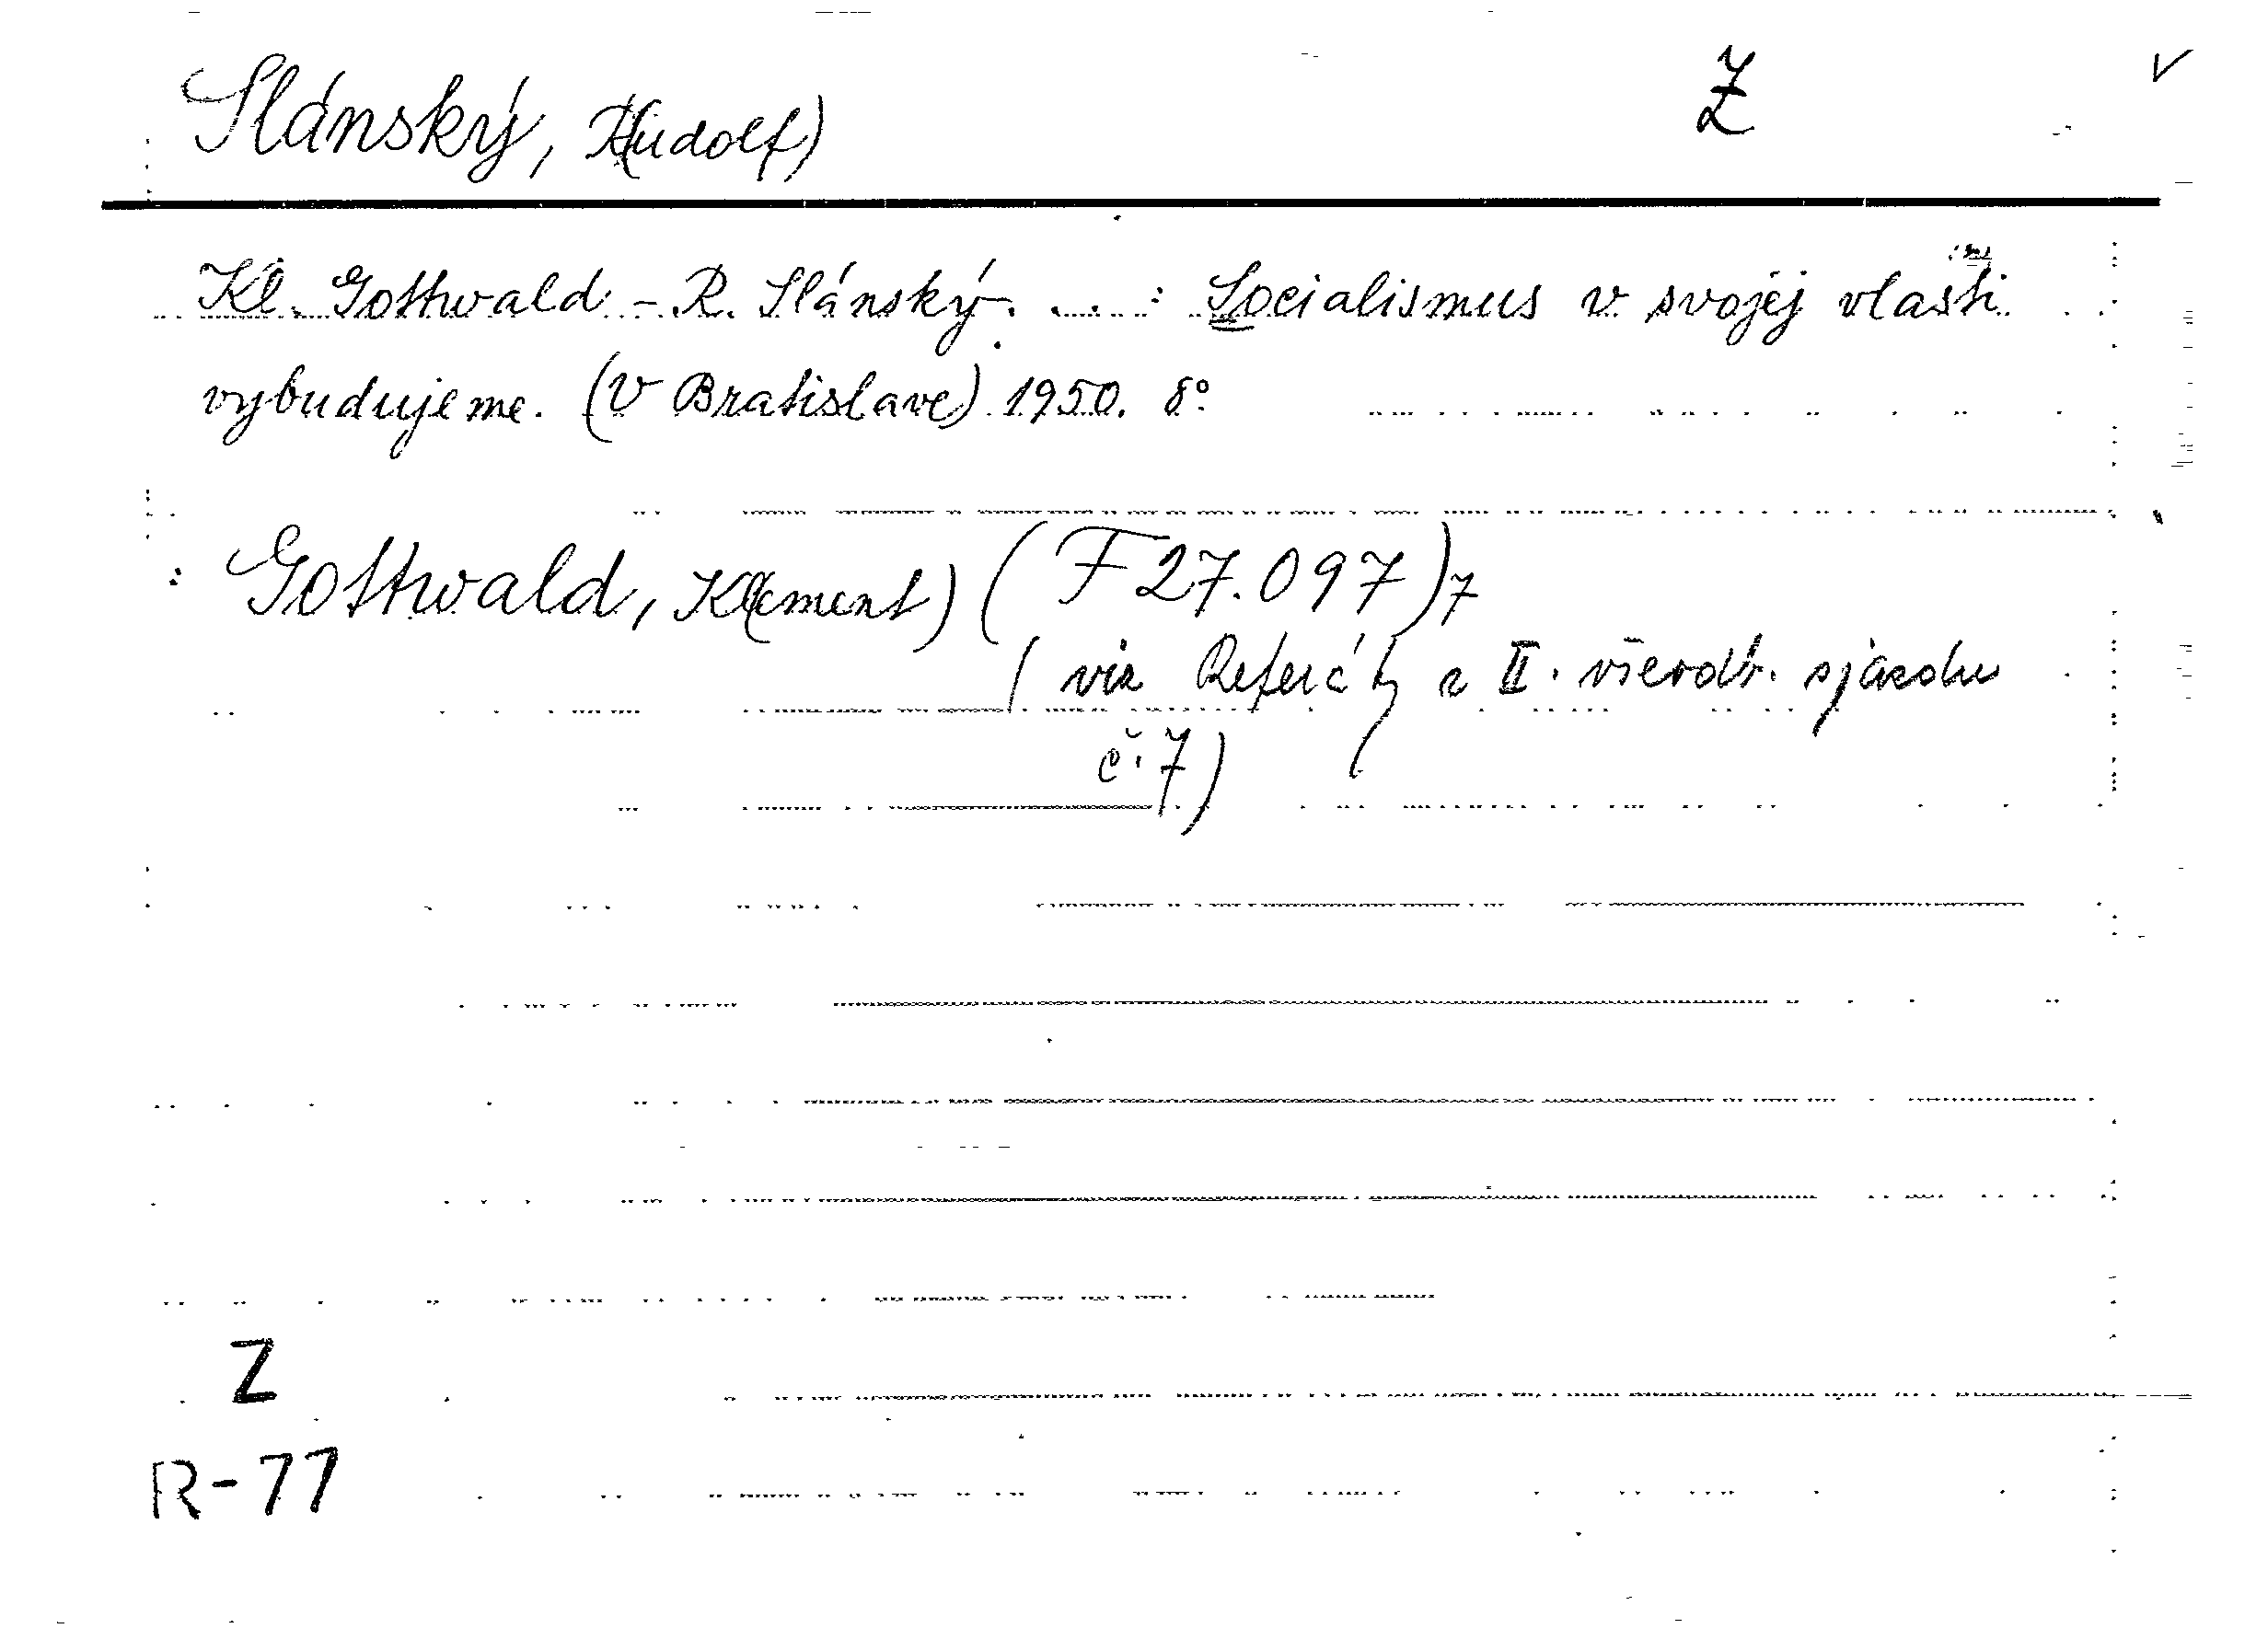 Slánský, R(udolf) Z v
Kl. Gottwald - R. Slánský. ... : Socialismus v svojej vlasti
vybudujeme. (V Bratislave) 1950. 8°
: Gottwald, Kl(ement) (F 27.097)7
(viz Referáty z II. všeodb. sjazdu
č. 7)
Z
R-77